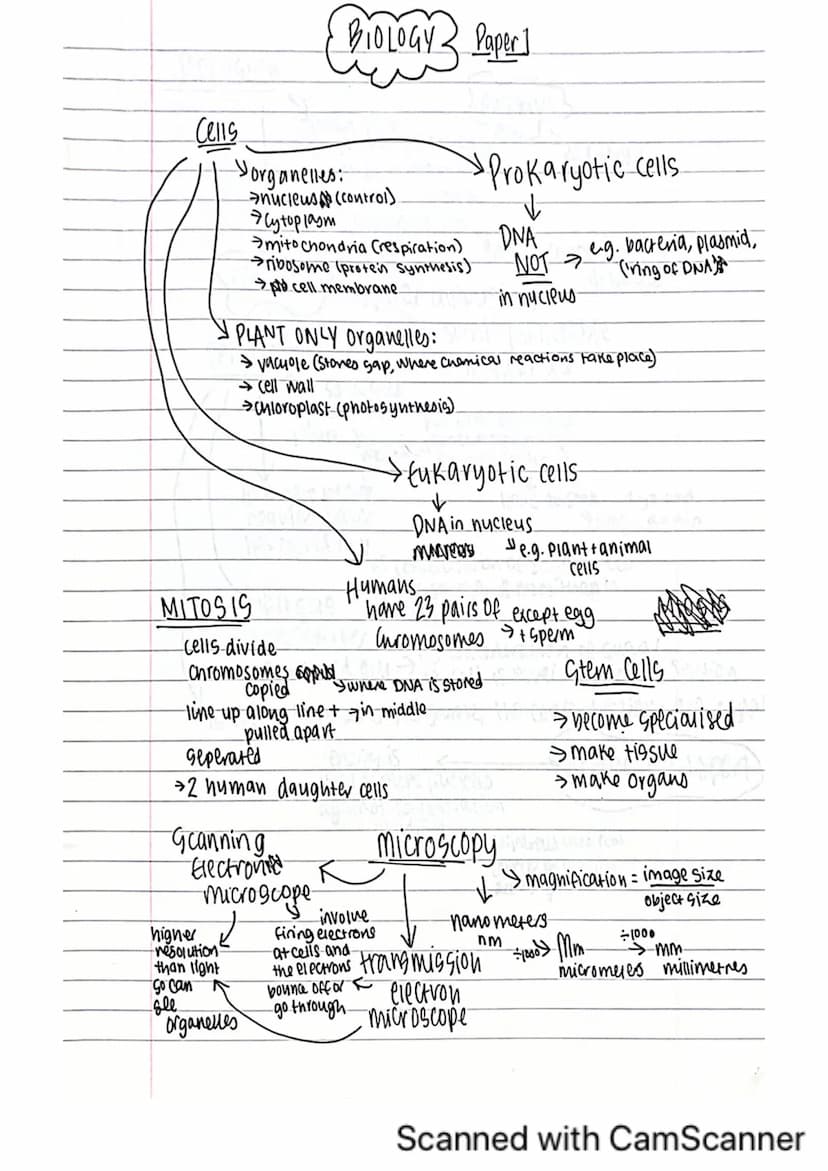 BIOLOGY Paper 1
Cells
organelles:
→nucleus (control)
→cytoplasm
→mitochondria (respiration)
→ribosome (protein synthesis)
→ cell membrane
Prokaryotic cells
DNA
NOT
in nucleus
→ e.g. bacteria, plasmid,
(ring of DNA)
PLANT ONLY organelles:
→ vacuole (stores sap, where chemical reactions take place)
→ cell wall
→chloroplast (photosynthesis)
Eukaryotic cells
DNA in nucleus
e.g. plant + animal
cells
Humans
have 23 pairs of
chromosomes
except egg
→ + sperm
MITOSIS
cells divide
chromosomes
copied
→where DNA is stored
line up along line + →in middle
pulled apart
seperated
→2 human daughter cells
Stem cells
→ become specialised
→ make tissue
→ make organs
Microscopy
Scanning
Electron
microscope
higher
resolution
than light
so can
see
organelles
involve
firing electrons
at cells and
the electrons
bounce off or
go through
transmission
electron
microscope
magnification = image size
object size
nanometers
nm
÷1000→ Mm
micrometres
÷1000
→ mm
millimetres
Scanned with CamScanner